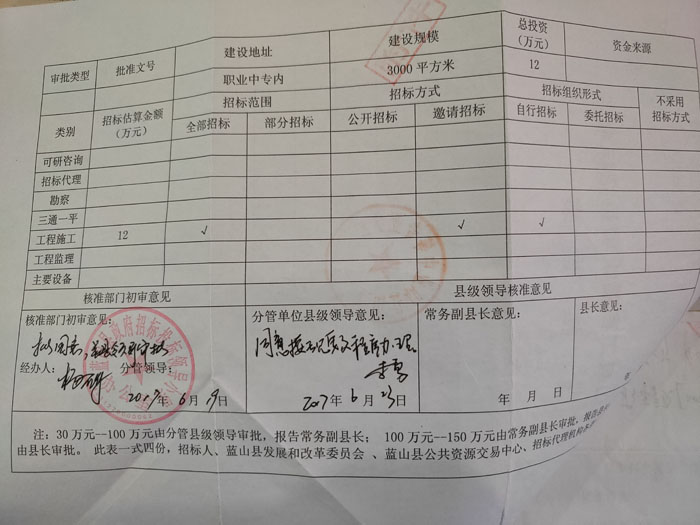 审批类型 批准文号 建设地址 建设规模 总投资(万元) 资金来源
职业中专内 3000 平方米 12
类别 招标估算金额(万元) 招标范围 招标方式 招标组织形式 不采用招标方式
全部招标 部分招标 公开招标 邀请招标 自行招标 委托招标
可研咨询
招标代理
勘察
三通一平
工程施工 12 √ √ √
工程监理
主要设备
核准部门初审意见 县级领导核准意见
核准部门初审意见: 分管单位县级领导意见: 常务副县长意见: 县长意见:
经办人: 分管领导:
2017年6月19日 2017年6月23日 年 月 日 年
注: 30 万元--100 万元由分管县级领导审批,报告常务副县长; 100 万元--150 万元由常务副县长审批,报告
由县长审批。 此表一式四份,招标人、蓝山县发展和改革委员会 、蓝山县公共资源交易中心、招标代理机构